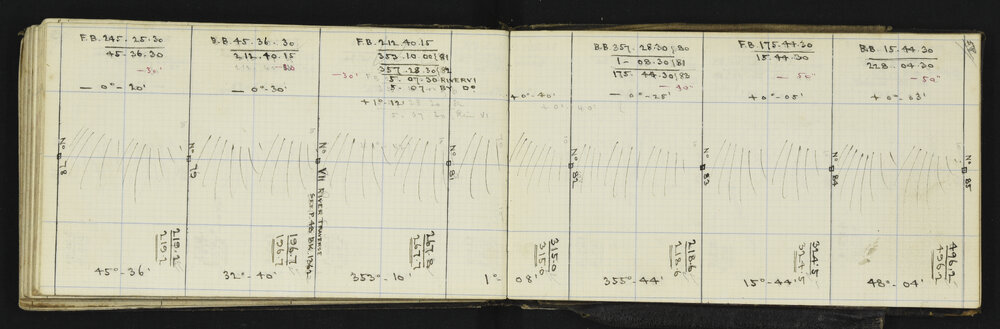 F.B. 245.25.30
45.36.30
-50"
- 0°-20'
B.B. 45.36.30
212.40.15
- 0°-30'
F.B. 212.40.15
353.10.00{81
357.28.30{82
-30" F.B. 5.07.30 RIVER VI
5.07.. BY 0°
+ 1°-12'
+ 0°-40'
+ 0°-40'
B.B. 357.28.30{80
1-08.30{81
175.44.30{83
-40"
- 0°-25'
F.B. 175.44.30
15.44.30
-50"
+ 0°-05'
B.B. 15.44.30
228.04.30
-50"
+ 0°-03'
58
No 78
No 79
No VII RIVER TRAVERSE
SEE P.40 BK 1262
No 81
No 82
No 83
No 84
No 85
219.2
219.2
196.7
196.7
267.8
267.7
315.0
315.0
218.6
218.6
324.5
324.5
496.2
496.2
45°-36'
32°-40'
353°-10'
1°-08'
355°-44'
15°-44'
48°-04'